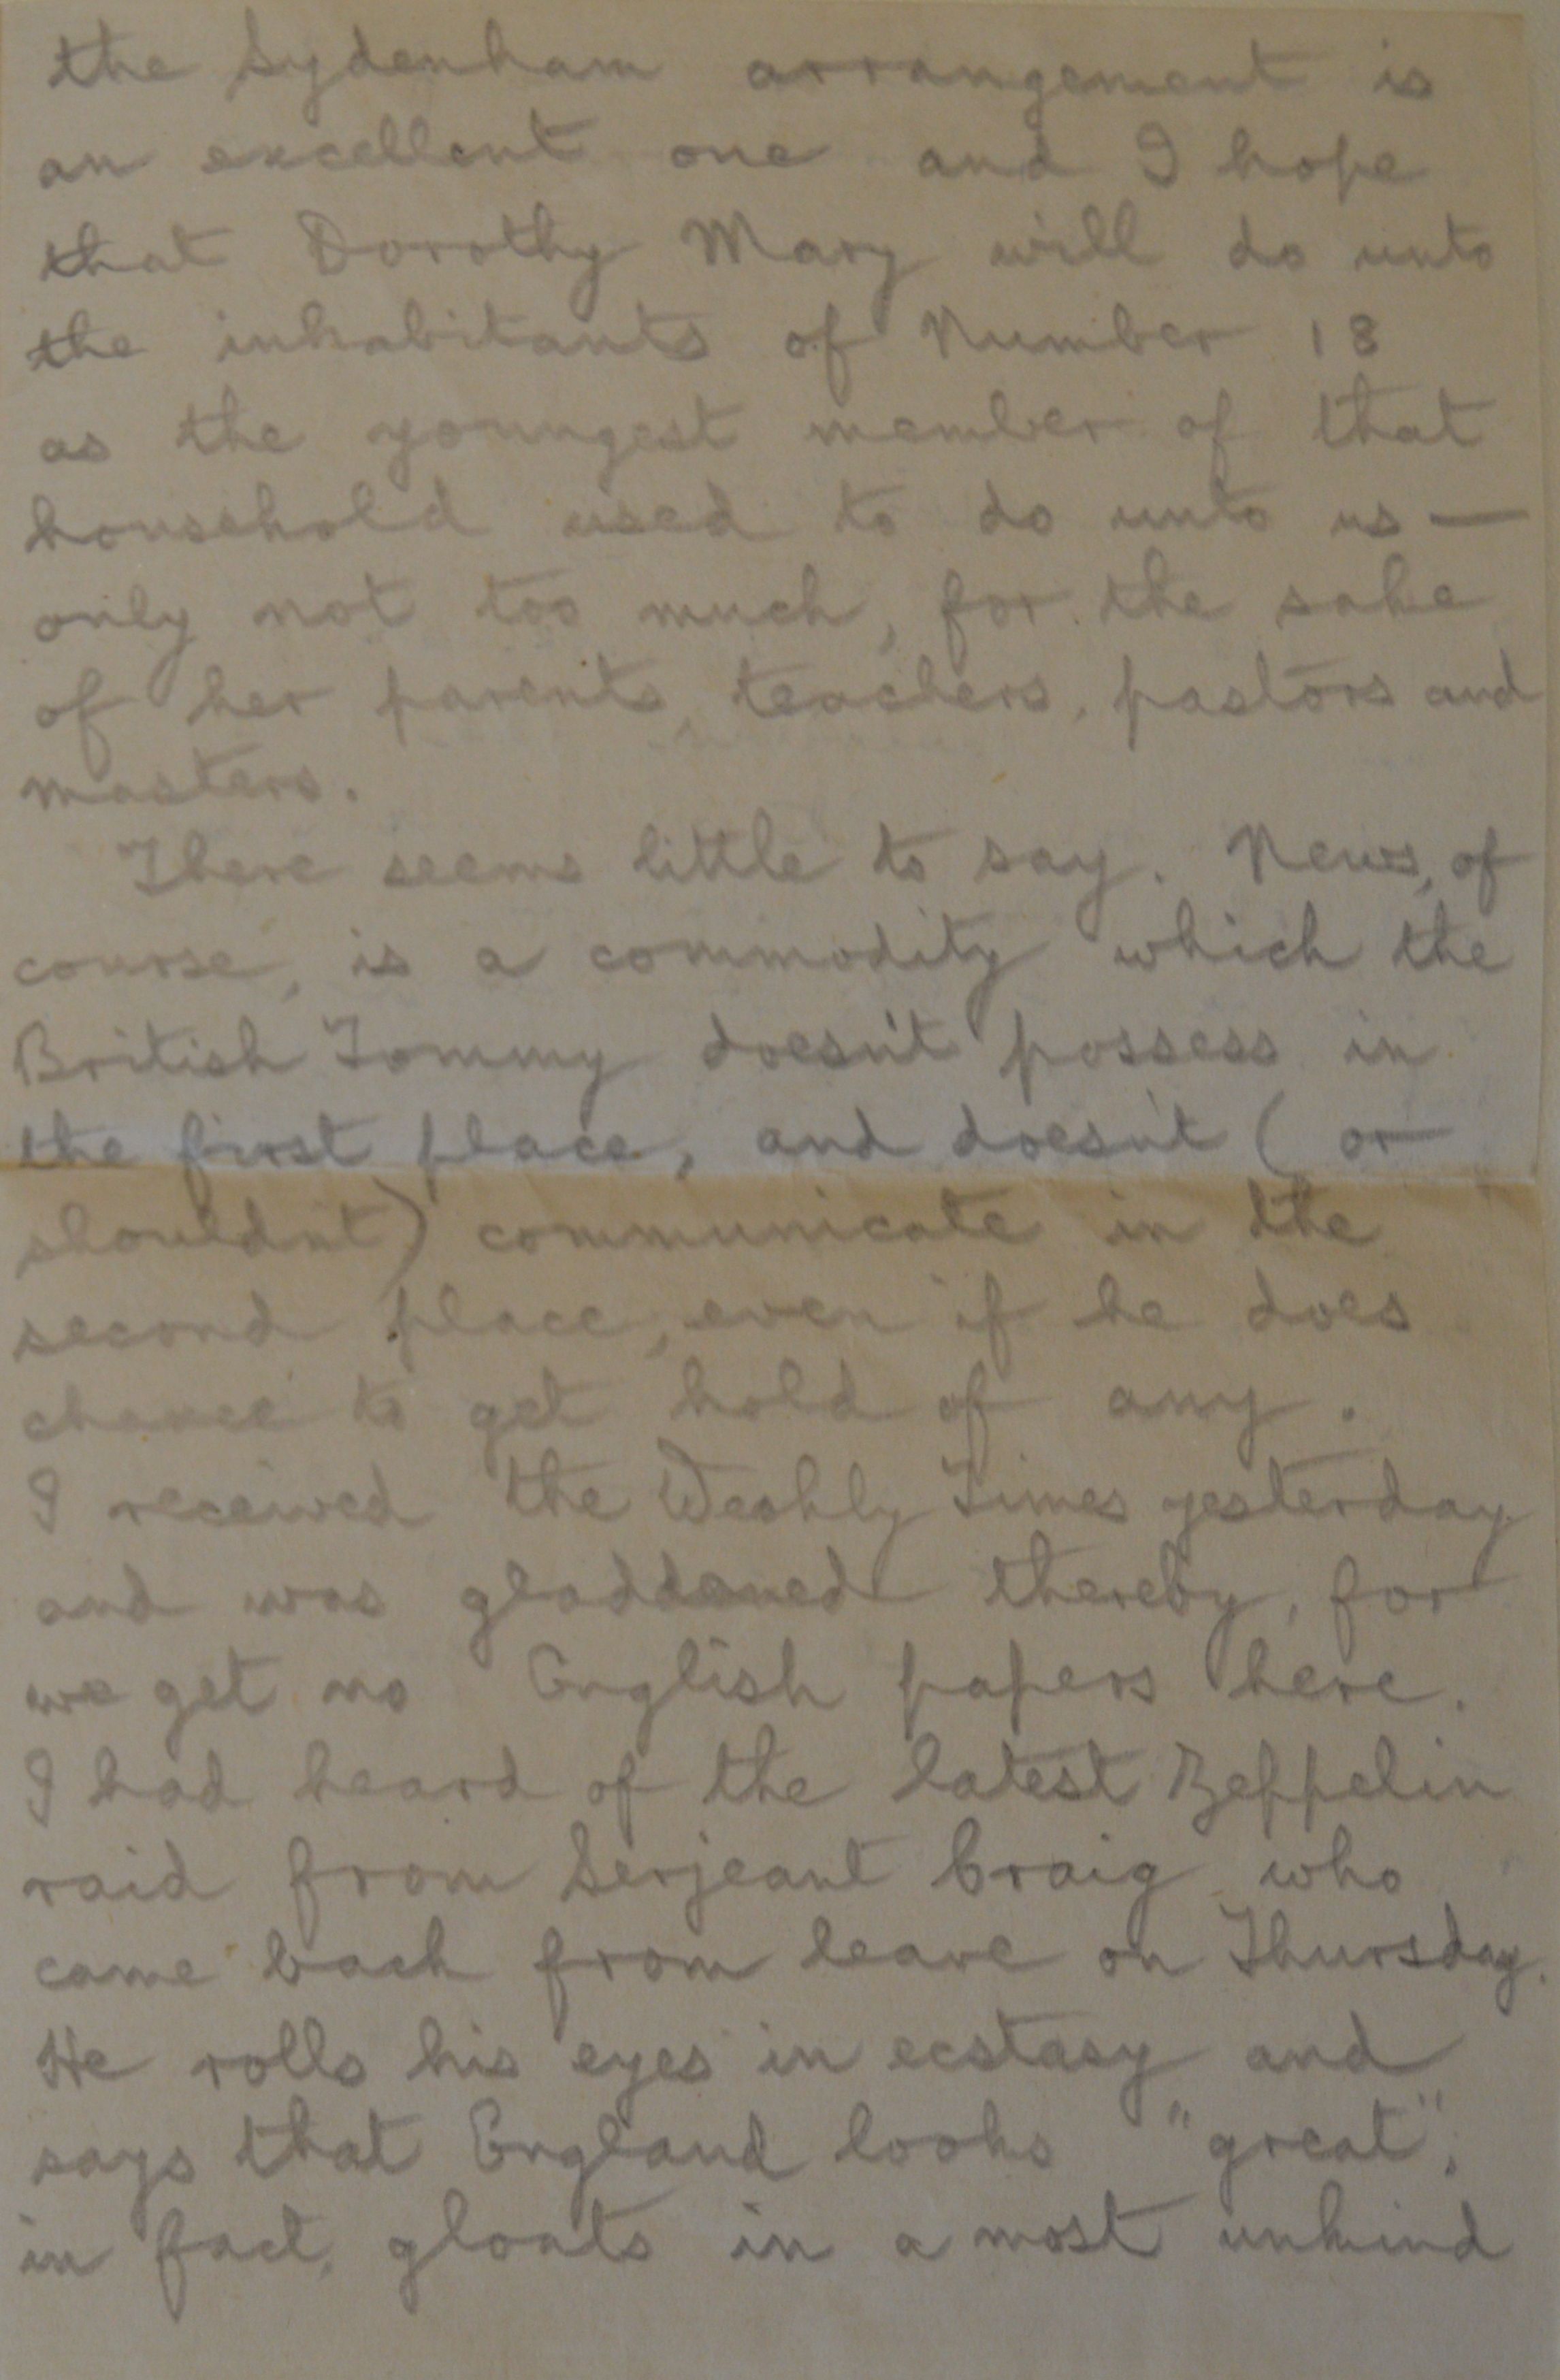 the Sydenham arrangement is
an excellent one and I hope
that Dorothy Mary will do unto
the inhabitants of Number 18
as the youngest member of that
household used to do unto us —
only not too much, for the sake
of her parents, teachers, pastors and
masters.
There seems little to say. News, of
course, is a commodity which the
British Tommy doesn't possess in
the first place, and doesn't (or
shouldn't) communicate in the
second place, even if he does
chance to get hold of any.
I received the Weekly Times yesterday
and was gladdened thereby, for
we get no English papers here.
I had heard of the latest Zeppelin
raid from Serjeant Craig who
came back from leave on Thursday.
He rolls his eyes in ecstasy and
says that England looks "great",
in fact, gloats in a most unkind